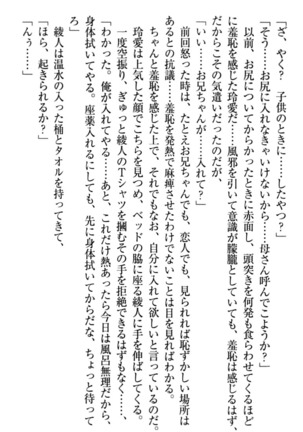 「さ、やく？　子供のときに……したやつ？」
「そう……お尻に入れなきゃいけないから……母さん呼んでこようか？」
以前、お尻についてからかったときに赤面し、頭突きを何発も食らわせてくるほど
に羞恥を感じていた玲愛だ……風邪を引いて意識が朦朧としていても、羞恥は感じるはず、
だからこその気遣いだったのだが、
「いい……お兄ちゃんが……入れて？」
前回怒った時は、たとえお兄ちゃんでも、恋人でも、見られれば恥ずかしい場所は
あるとの抗議……羞恥を発熱で麻痺させたわけでないことは目を見ればわかる。
ちゃんと羞恥を感じた上で、それでもなお、自分に入れて欲しいと言っているのだ。
玲愛は上気した顔でこちらを見つめ、ベッドの脇に座る綾人に手を伸ばしてくる。
一度空振り、ぎゅっと綾人のＴシャツを掴むその手を拒絶できるはずもなく……
「わかった。俺が入れてやる……あと、これだけ熱あったら今日は風呂無理だから、
身体拭いてやる。座薬入れるにしても、先に身体拭いてからだな、ちょっと待って
ろ」
綾人は温水の入った桶とタオルを持ってきて、
「ほら、起きられるか？」
「んぅ……」